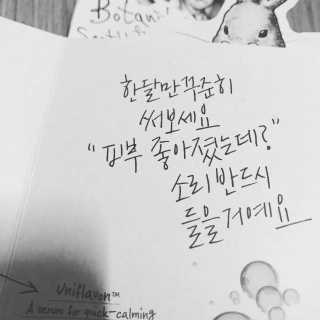 Botani
한달만 꾸준히
써보세요
"피부 좋아졌는데?"
소리 반드시
들을거예요
Uniflavon™
A serum for quick-calming